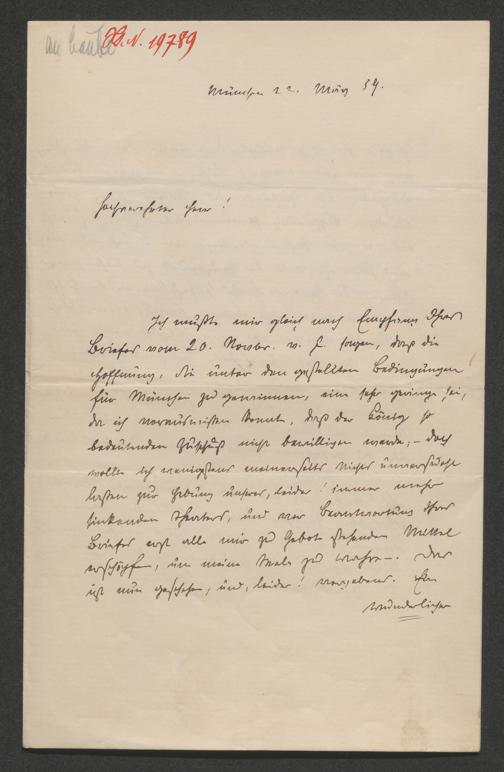 an Laube
J.N. 19789
München 22. März 59.
Hochverehrter Herr!
Ich mußte mir gleich nach Empfang Ihres
Briefes vom 20. Novbr. v. J. sagen, daß die
Hoffnung, Sie unter den gestellten Bedingungen
für München zu gewinnen, eine sehr geringe sei,
da ich voraussetzen konnte, daß der König so
bedeutenden Zuschuß nicht bewilligen werde; – doch
wollte ich wenigstens meinerseits nichts unversucht
lassen zur Hebung unseres, leider! immer mehr
sinkenden Theaters, und vor Beantwortung Ihres
Briefes erst alle mir zu Gebot stehenden Mittel
erschöpfen, um meine zu . Das
ist nun geschehen, und, leider! vergebens. Ein
wunderlicher